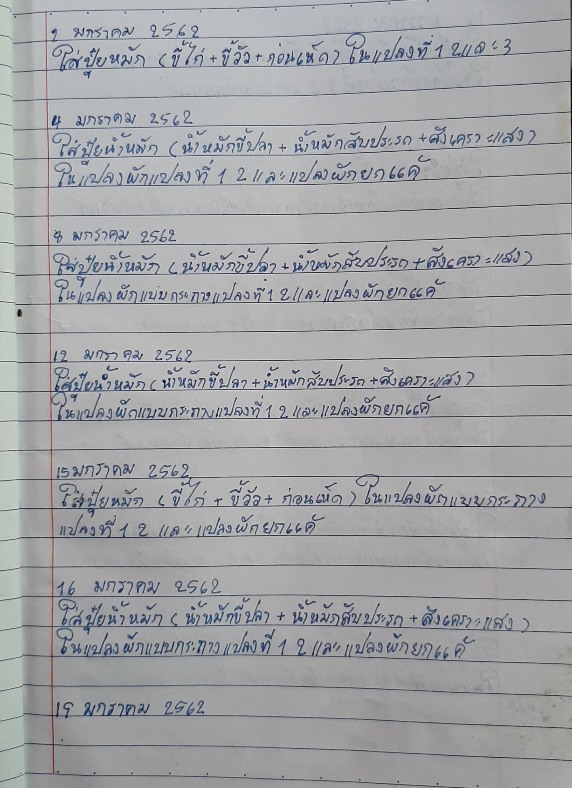 1 มกราคม 2562
ใส่ปุ๋ยหมัก (ขี้ไก่ + ขี้วัว + ก่อนเห็ด) ในแปลงที่ 1 2 และ 3
4 มกราคม 2562
ใส่ปุ๋ยน้ำหมัก (น้ำหมักขี้ปลา + น้ำหมักสับประรด + สังเคราะแสง)
ในแปลงผักแปลงที่ 1 2 และแปลงผักยกแคั
8 มกราคม 2562
ใส่ปุ๋ยน้ำหมัก (น้ำหมักขี้ปลา + น้ำหมักสับประรด + สังเคราะแสง)
ในแปลงผักแบบกระถางแปลงที่ 1 2 และแปลงผักยกแคั
12 มกราคม 2562
ใส่ปุ๋ยน้ำหมัก (น้ำหมักขี้ปลา + น้ำหมักสับประรด + สังเคราะแสง)
ในแปลงผักแบบกระถางแปลงที่ 1 2 และแปลงผักยกแคั
15 มกราคม 2562
ใส่ปุ๋ยหมัก (ขี้ไก่ + ขี้วัว + ก่อนเห็ด) ในแปลงผักแบบกระถาง
แปลงที่ 1 2 และ แปลงผักยกแคั
16 มกราคม 2562
ใส่ปุ๋ยน้ำหมัก (น้ำหมักขี้ปลา + น้ำหมักสับประรด + สังเคราะแสง)
ในแปลงผักแบบกระถางแปลงที่ 1 2 และแปลงผักยกแคั
19 มกราคม 2562